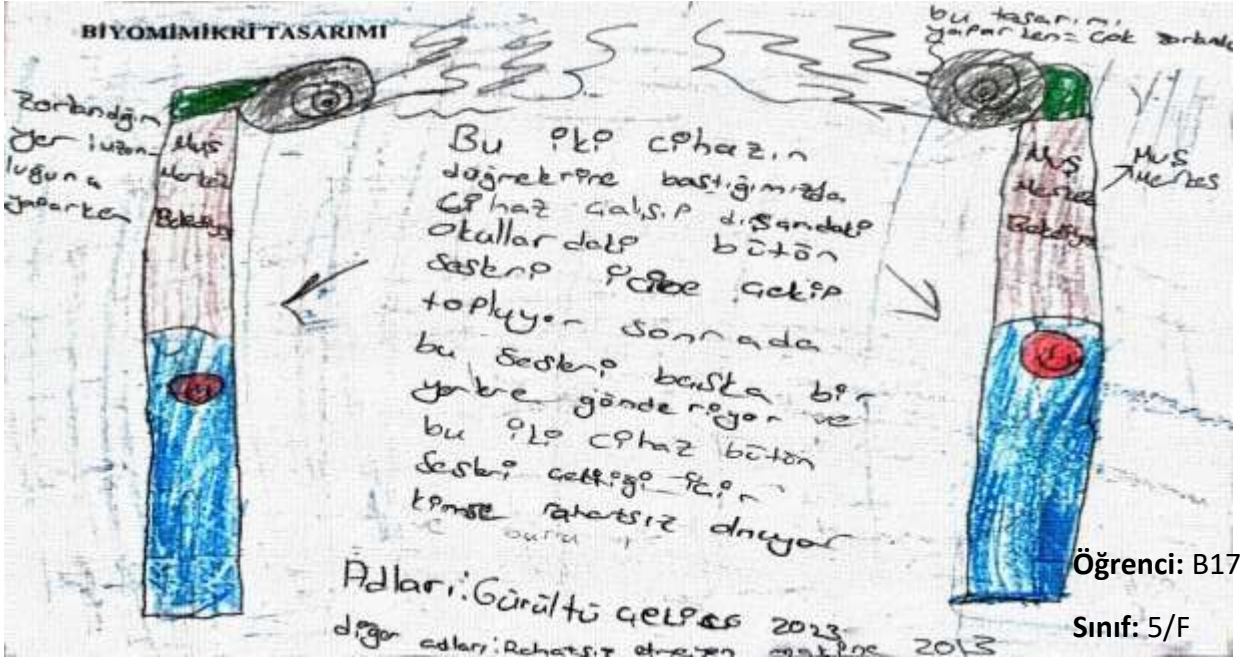 BİYOMİMİKRİ TASARIMI
bu tasarımı
yaparken = çok
Zorlandığım
yer :uzun-
luğuna
yaparken
Muş
Merkez
Belediye
Muş
Merkez
Belediye
Muş
Merkes
Bu iki cihazın
düğmekrine bastığımızda
cihaz çalışıp dışarıdaki
okullardaki bütön
seskri içine çekip
topluyor sonrada
bu seskri başka bir
yerkre gönderiyor ve
bu iki cihaz bütön
seskri çektiği için
kimse rahatsız olmuyor
Adları: Gürültü çekici 2023
diğer adları: Rahatsız etmeyen makine 2013
Öğrenci: B17
Sınıf: 5/F